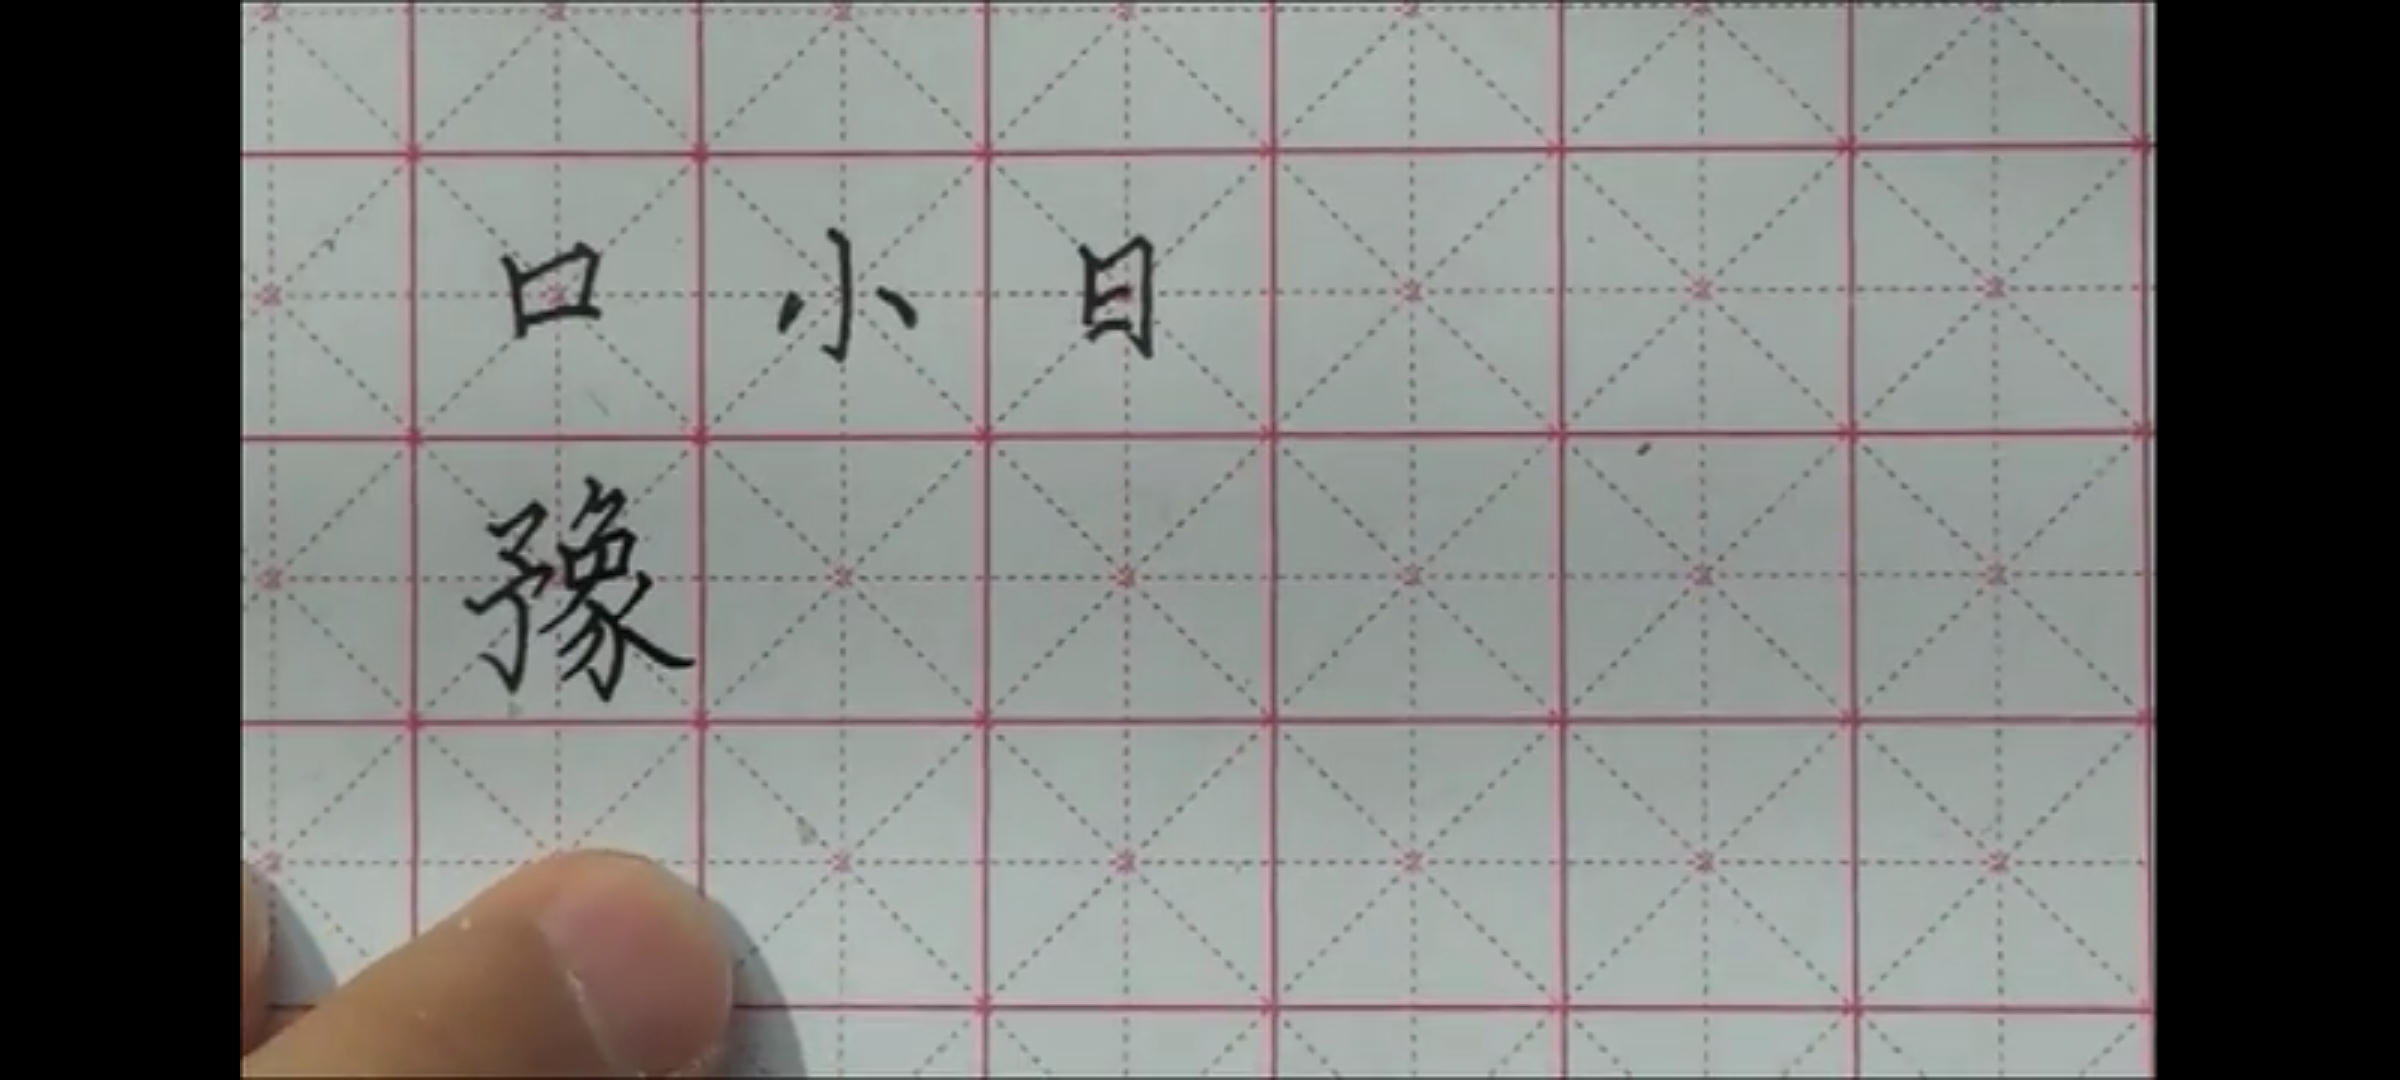 口小日
豫